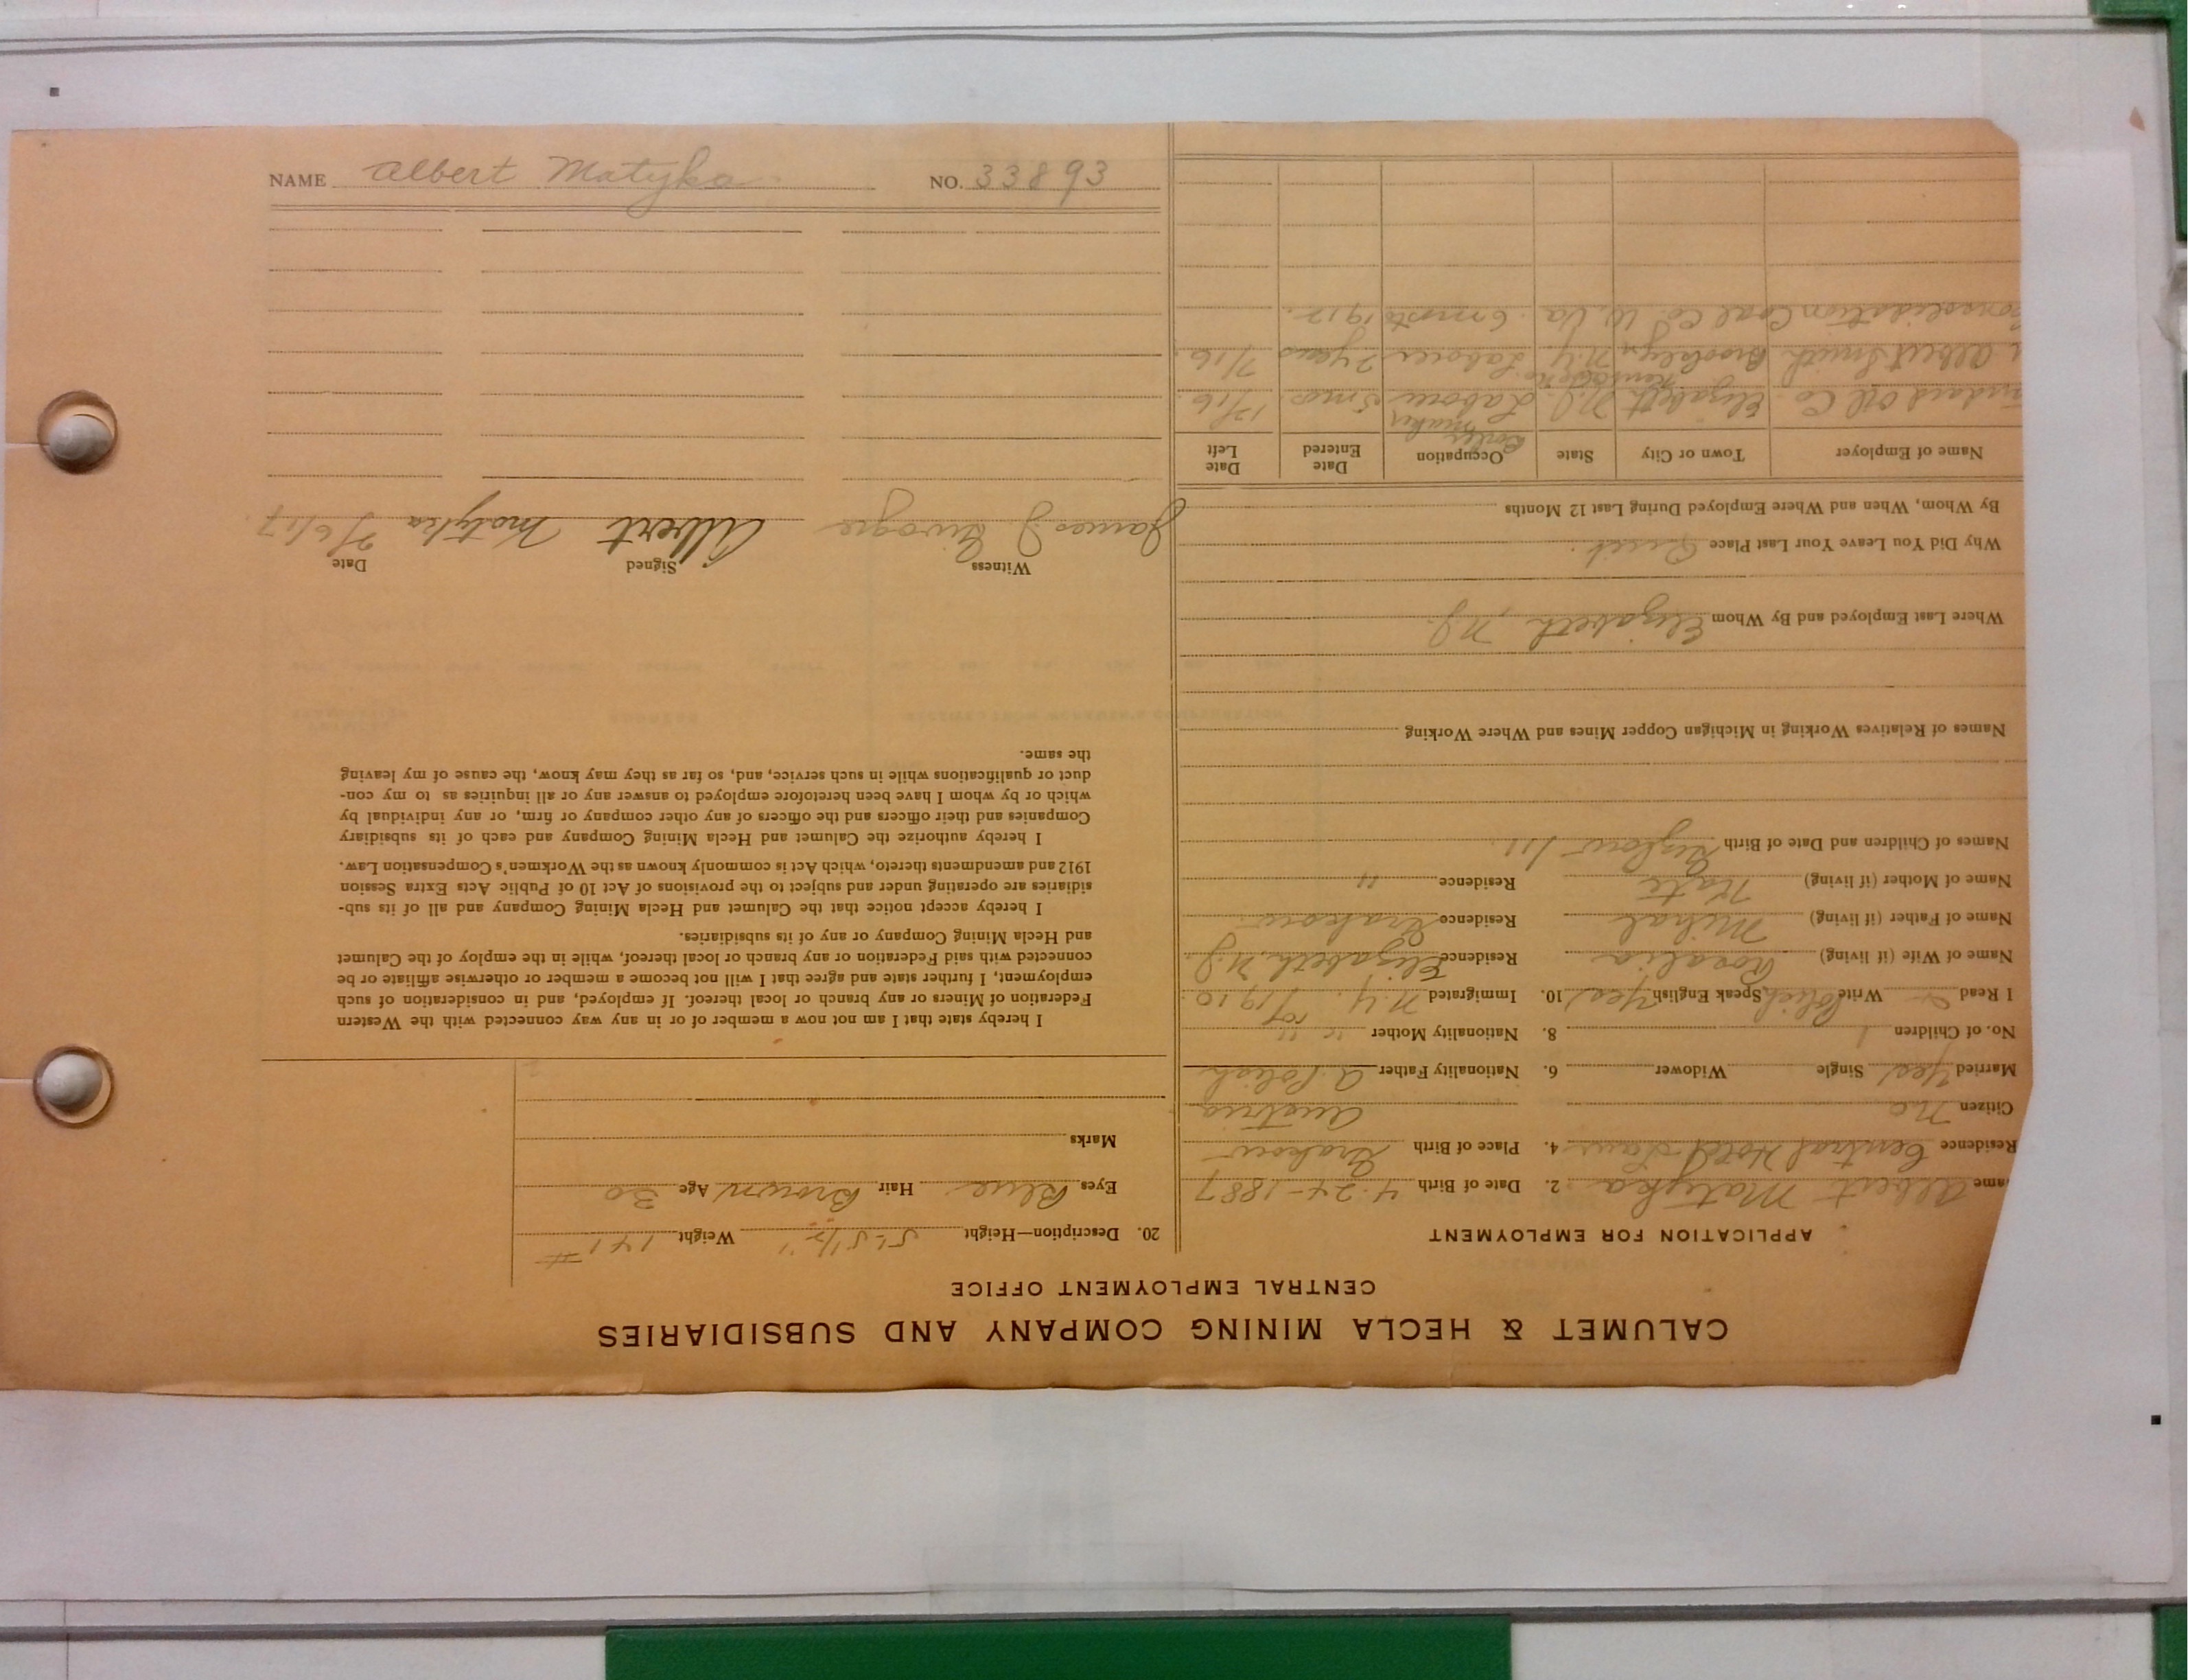 CALUMET & HECLA MINING COMPANY AND SUBSIDIARIES
CENTRAL EMPLOYMENT OFFICE
APPLICATION FOR EMPLOYMENT
ame Albert Matyka 2. Date of Birth 4-24-1887
Residence Central Hotel 4. Place of Birth Krakow
Citizen no Austria
Married Yes Single Widower 6. Nationality Father A. Polish
No. of Children 1 8. Nationality Mother " "
I Read & Write Polish Speak English Yes 10. Immigrated N.Y. 1910
Name of Wife (if living) Rosalia Residence Elizabeth N.J.
Name of Father (if living) Mihal Residence Krakow
Name of Mother (if living) Kate Residence "
Names of Children and Date of Birth
Names of Relatives Working in Michigan Copper Mines and Where Working
Where Last Employed and By Whom Elizabeth, N.J.
Why Did You Leave Your Last Place Quit.
By Whom, When and Where Employed During Last 12 Months
Name of Employer Town or City State Occupation Date Entered Date Left
Boiler maker
ndard Oil Co. Elizabeth N.J. Laborer 5 mos. 12/16.
Albert Smith Brooklyn N.Y. Laborer 2 years 7/16.
onsolidation Coal Co. W. Va. 6 mos to 1912.
20. Description—Height 5'-5 1/2" Weight 141 #
Eyes Blue Hair Brown Age 30
Marks
I hereby state that I am not now a member of or in any way connected with the Western
Federation of Miners or any branch or local thereof. If employed, and in consideration of such
employment, I further state and agree that I will not become a member or otherwise affiliate or be
connected with said Federation or any branch or local thereof, while in the employ of the Calumet
and Hecla Mining Company or any of its subsidiaries.
I hereby accept notice that the Calumet and Hecla Mining Company and all of its sub-
sidiaries are operating under and subject to the provisions of Act 10 of Public Acts Extra Session
1912 and amendments thereto, which Act is commonly known as the Workmen's Compensation Law.
I hereby authorize the Calumet and Hecla Mining Company and each of its subsidiary
Companies and their officers and the officers of any other company or firm, or any individual by
which or by whom I have been heretofore employed to answer any or all inquiries as to my con-
duct or qualifications while in such service, and, so far as they may know, the cause of my leaving
the same.
Witness Signed Date
James J Albert Matyka 2/6/17
NAME Albert Matyka NO. 33893